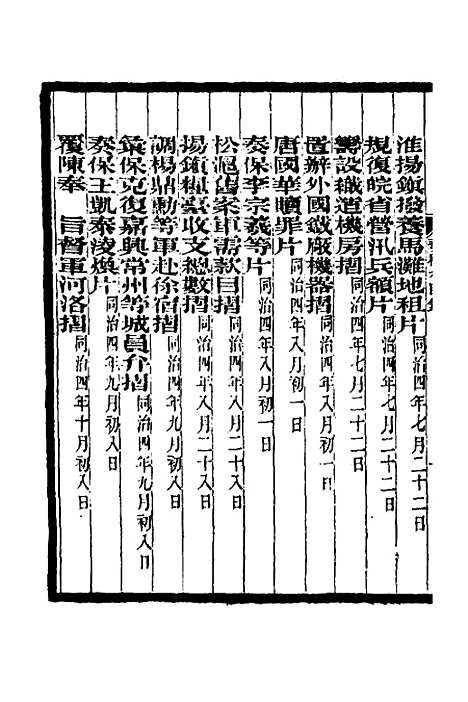 淮揚鎮撥養馬灘地租片同治四年七月二十二日
規復皖省營汛兵額片同治四年七月二十二日
籌設織造機房摺同治四年七月二十二日
置辦外國鐵廠機器摺同治四年八月初一日
唐國華贖罪片同治四年八月初一日
奏保李宗羲等片同治四年八月初一日
松滬舊案軍需款目摺同治四年八月二十八日
揚鎮糧臺收支總數摺同治四年八月二十八日
調楊鼎勳等軍赴徐宿摺同治四年九月初八日
彙保克復嘉興常州等城員弁摺同治四年九月初八日
奏保王凱泰淩煥片同治四年九月初八日
覆陳奉 旨督軍河洛摺同治四年十月初八日